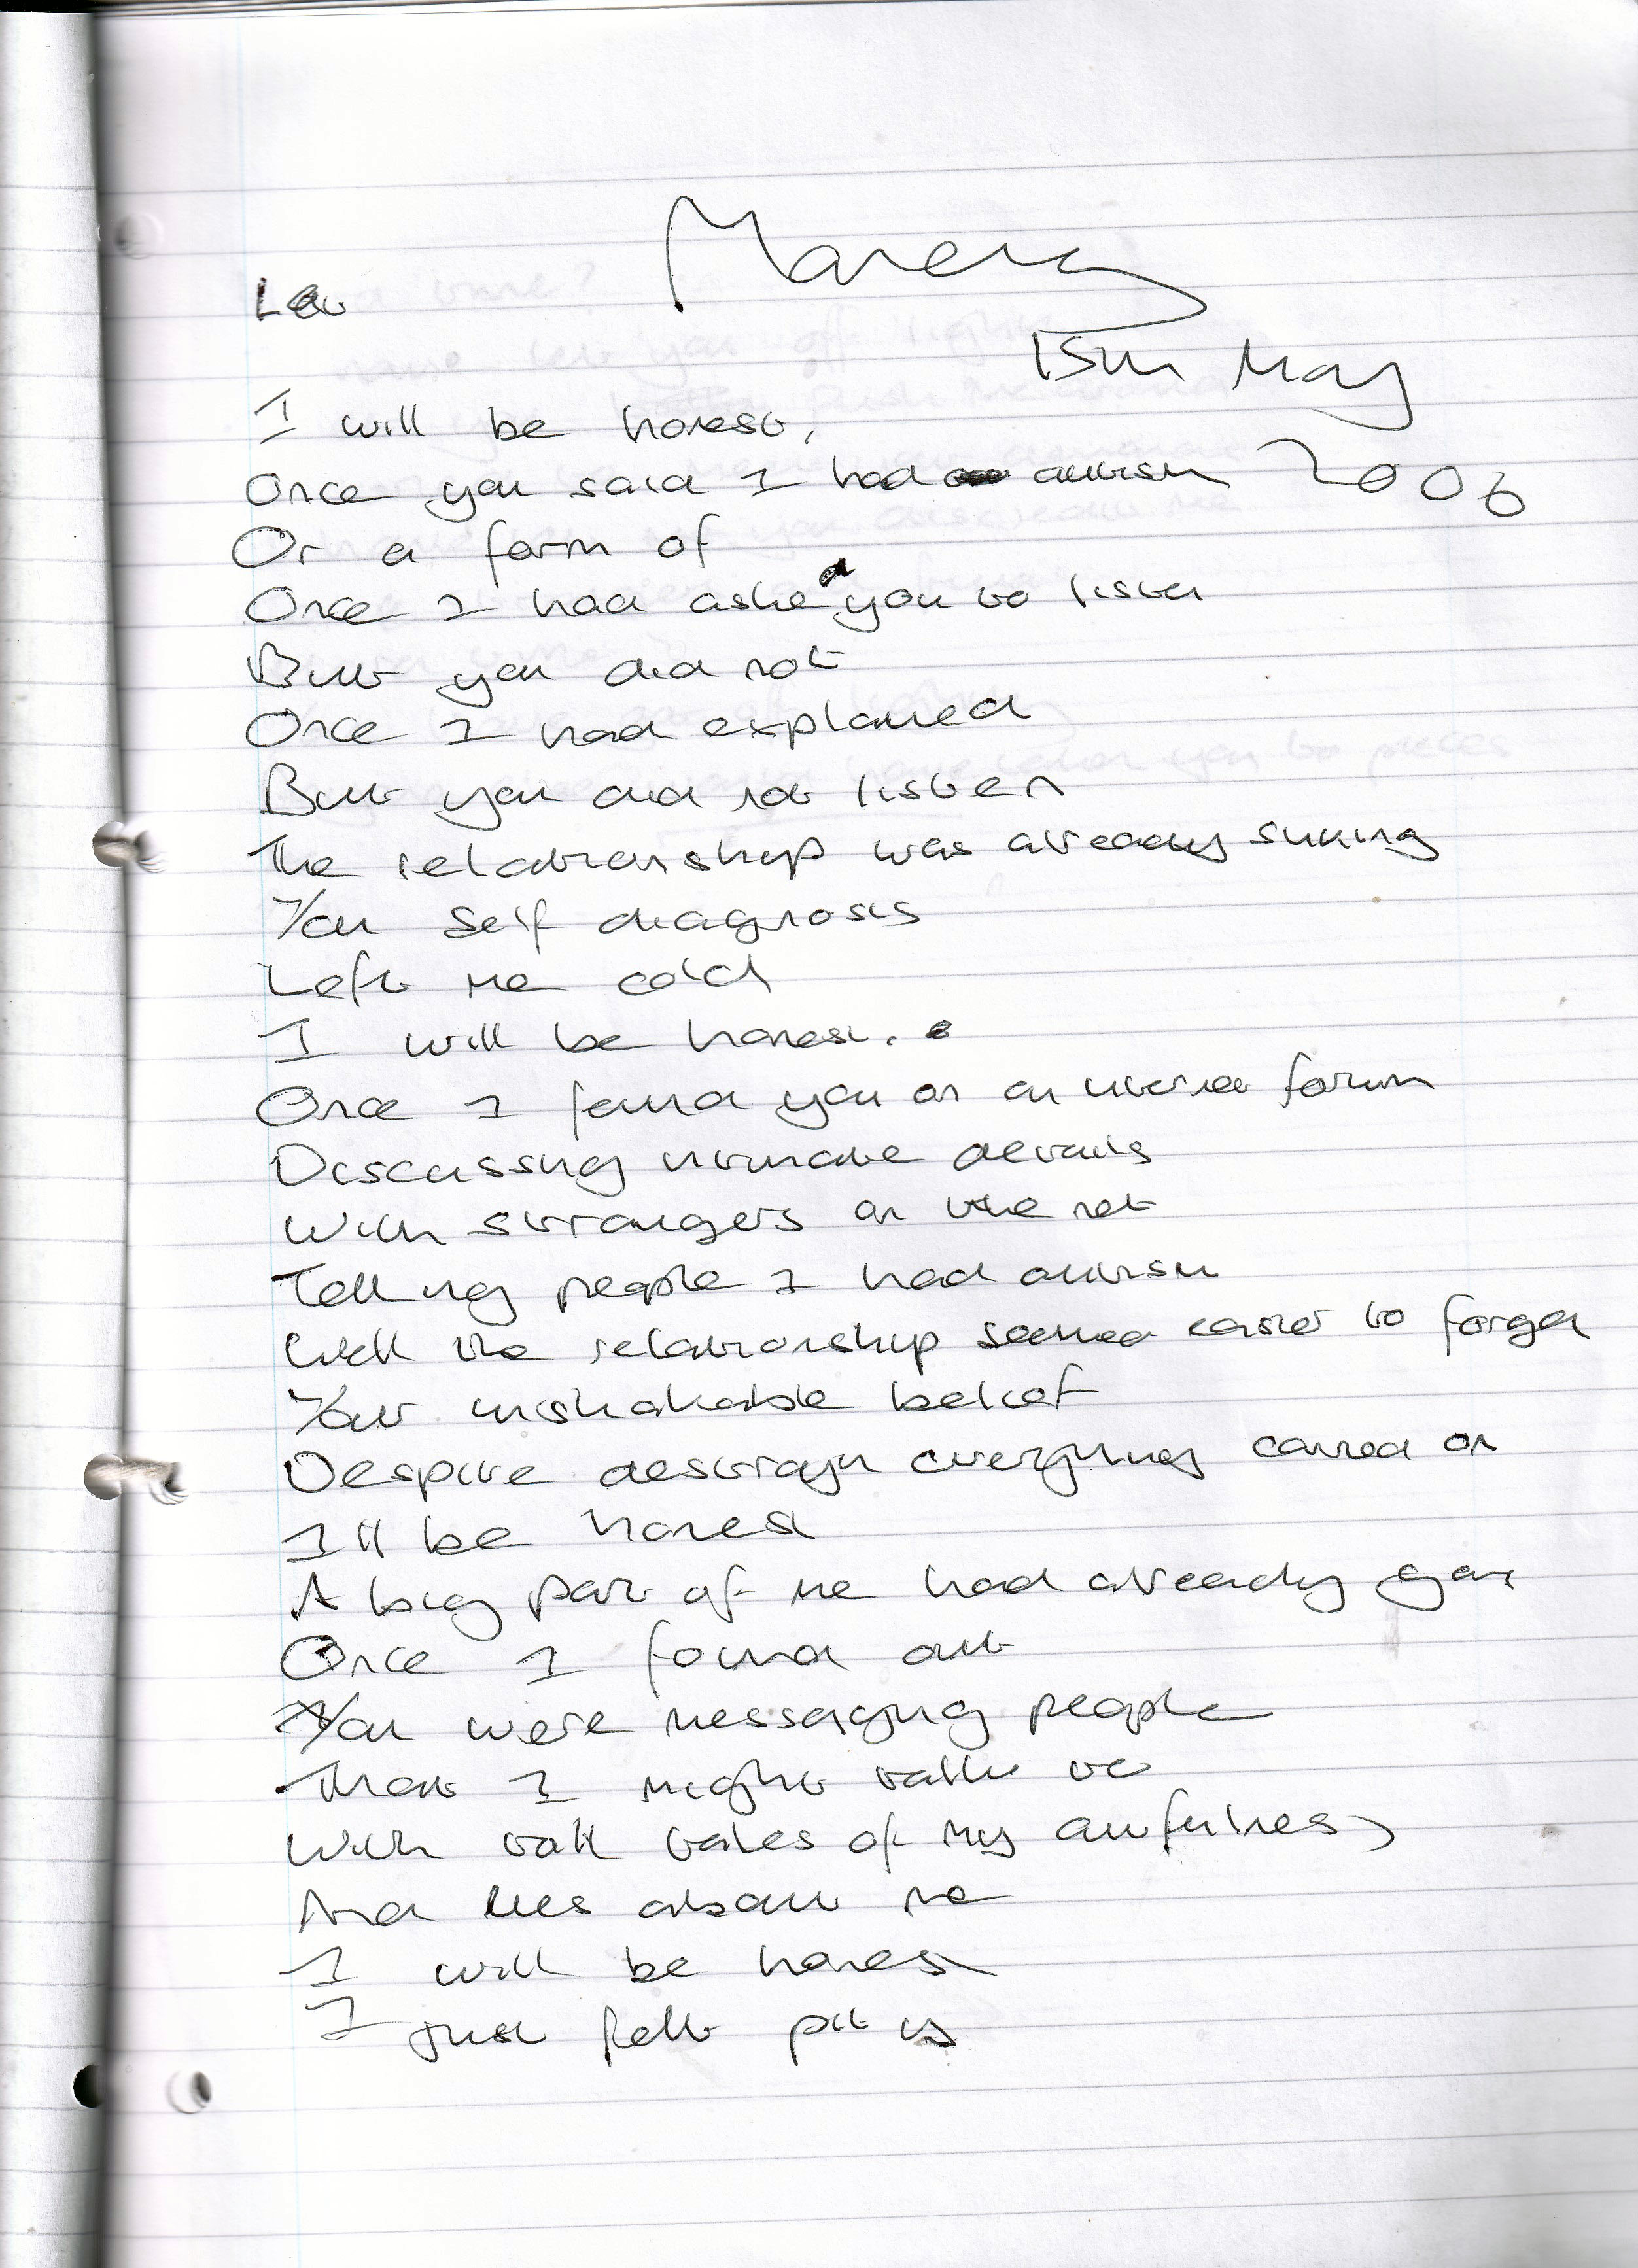 15th May
2006
I will be honest,
Once you said I had autism
Or a form of
Once I had asked you to listen
But you did not
Once I had explained
But you did not listen
The relationship was already sinking
You self diagnosis
Left me cold
I will be honest.
Once I found you on an internet forum
Discussing intimate details
With strangers on the net
Telling people I had autism
Well the relationship seemed easier to forget
Your unshakable belief
Despite destroyin everything carried on
I'll be honest
A big part of me had already gone
Once I found out
You were messaging people
That I might talk to
With tall tales of my awfulness
And lies about me
I will be honest
I just felt